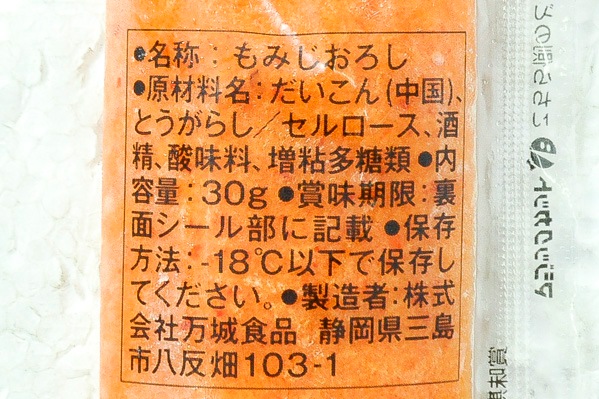 ●名称：もみじおろし
●原材料名：だいこん(中国)、
とうがらし／セルロース、酒
精、酸味料、増粘多糖類 ●内
容量：30g ●賞味期限：裏
面シール部に記載 ●保存
方法：-18℃以下で保存し
てください。●製造者：株式
会社万城食品 静岡県三島
市八反畑103-1